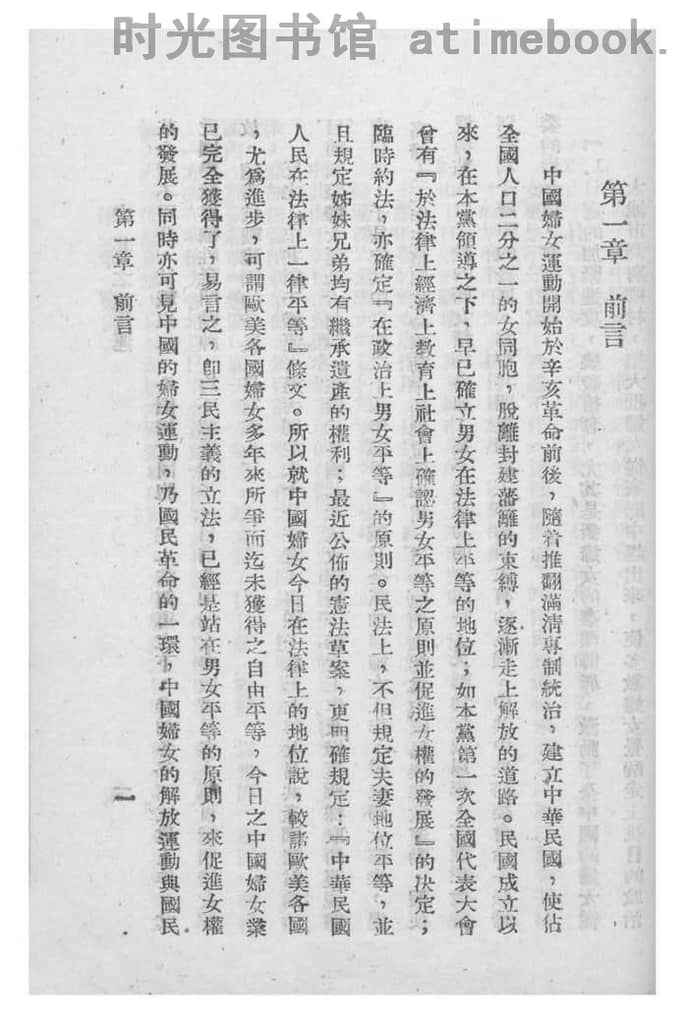 时光图书馆 atimebook.
第一章 前言
中國婦女運動開始於辛亥革命前後，隨着推翻滿淸專制統治，建立中華民國，使佔
全國人口二分之一的女同胞，脫離封建藩籬的束縛，逐漸走上解放的道路。民國成立以
來，在本黨領導之下，早已確立男女在法律上平等的地位；如本黨第一次全國代表大會
曾有『於法律上經濟上教育上社會上確認男女平等之原則並促進女權的發展』的決定；
臨時約法，亦確定『在政治上男女平等』的原則。民法上，不但規定夫妻地位平等，並
且規定姊妹兄弟均有繼承遺產的權利；最近公佈的憲法草案，更明確規定：『中華民國
人民在法律上一律平等』條文。所以就中國婦女今日在法律上的地位說，較諸歐美各國
，尤爲進步，可謂歐美各國婦女多年來所爭而迄未獲得之自由平等，今日之中國婦女業
已完全獲得了，易言之，卽三民主義的立法，已經是站在男女平等的原則，來促進女權
的發展。同時亦可見中國的婦女運動，乃國民革命的一環，中國婦女的解放運動與國民
第一章 前言
一